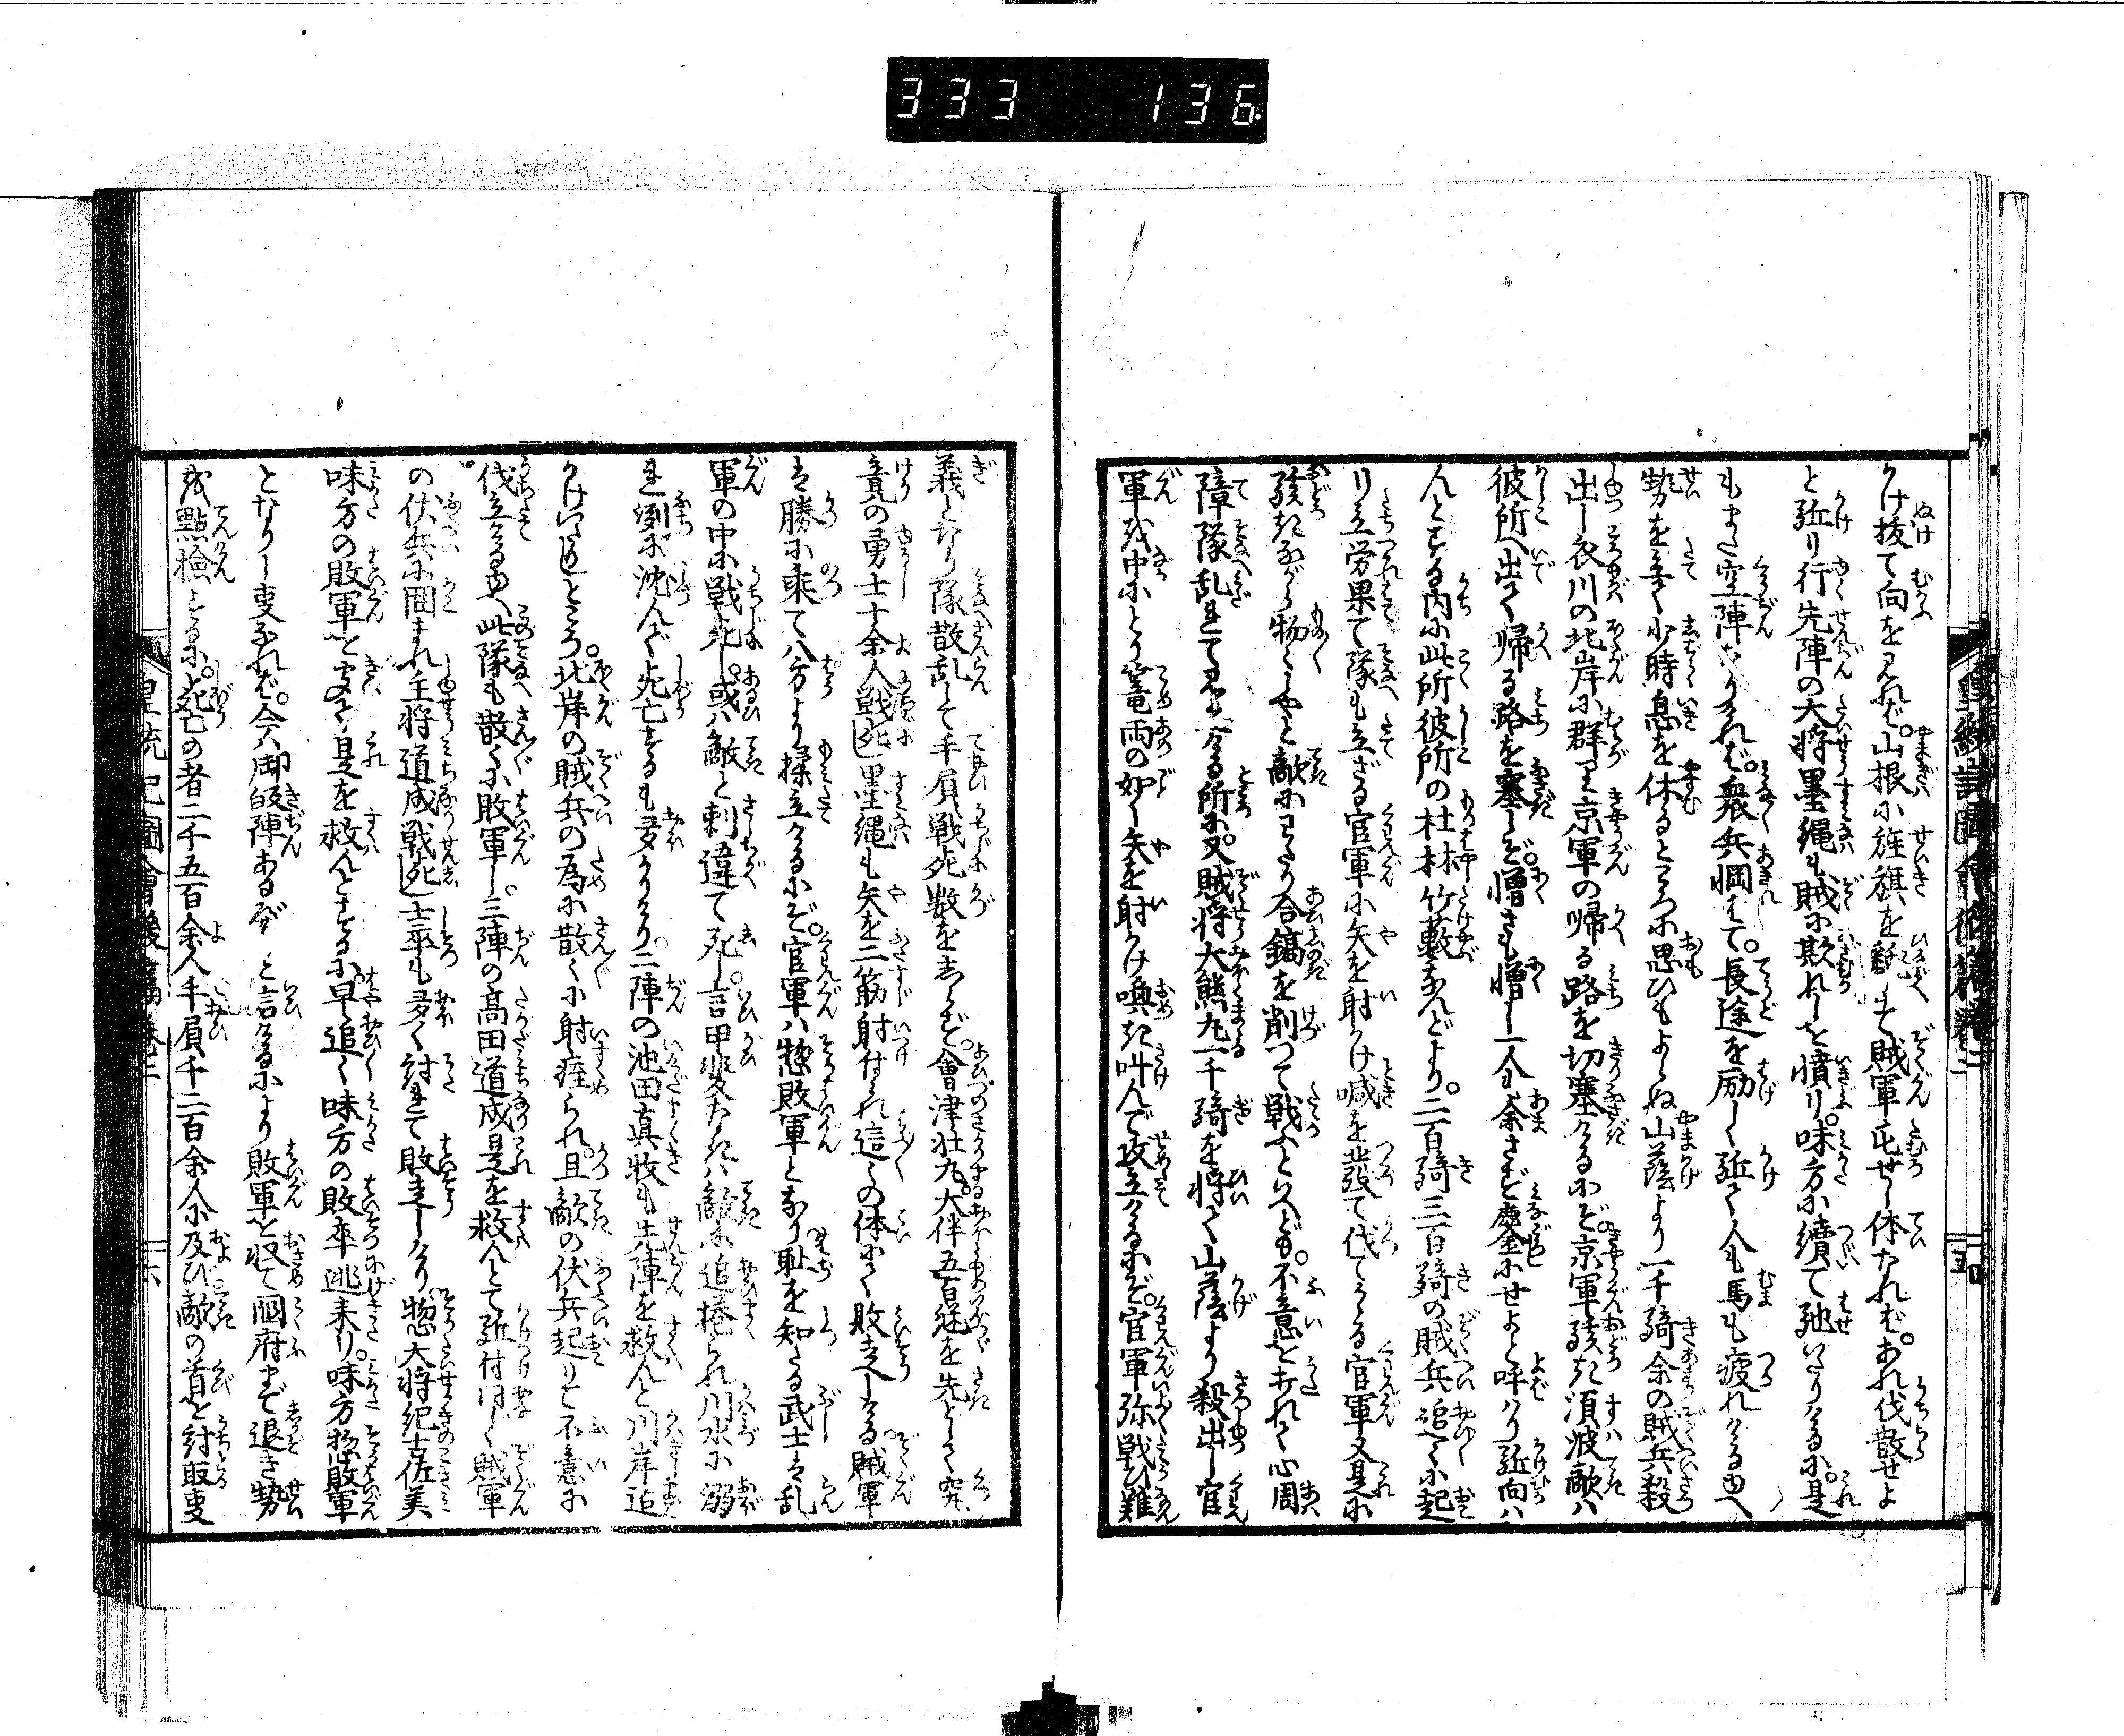 333 136
け抜て向を見れば。山根に旌旗を飜して賊軍屯せし体なれば。あれ伐散せよ
と駈り行先陣の大将墨縄も賊に欺れしを憤り。味方に續て馳いたりけるに。是
もまた空陣なりければ。衆兵惘はて。長途を励しく駈て人も馬も疲れける由へ
勢を立て少時息を休るところに思ひもよらぬ山蔭より一千騎余の賊兵殺
出し衣川の北岸に群り京軍の帰る路を切塞ぎけるにぞ。京軍駭き須波敵は
彼所へ出て帰る路を塞しぞ。憎さも憎し一人も余さず鏖にせよと呼はり駈向は
んとする内に此所彼所の杜林竹藪なんどより。二百騎三百騎の賊兵追々に起
り立労果て隊も立ざる官軍に矢を射かけ喊を發て伐てかゝる官軍又是に
駭きながら物々しやと敵にわたり合鎬を削つて戦ふといへども。不意をうたれて心周
障隊乱れて見えける所に。又賊将大熊丸一千騎を将て山蔭より殺出し官
軍を中にとり篭雨の如く矢を射かけ喚き叫んで攻立けるにぞ。官軍弥戦ひ難
義となり隊散乱して手屓戦死数をしらず。會津壮丸。大伴五百継を先として究
竟の勇士十余人戦死し墨縄も矢を二筋射付られ這々の体にて敗走しける。賊軍
は勝に乗て八方より揉立けるにぞ。官軍は惣敗軍となり恥を知たる武士は乱
軍の中に戦死し。或は敵と刺違て死し。言甲斐なきは敵に追捲られ川水に溺
れ渕に沈んで死亡するも多かりけり。二陣の池田真牧も先陣を救んと川岸迄
かけいだしところ。北岸の賊兵の為に散々に射痓られ。且敵の伏兵起りて不意に
伐立ける由へ此隊も散々に敗軍し。三陣の高田道成是を救んとて駈付けしく賊軍
の伏兵に囲まれ主将道成戦死し士卒も多く討れて敗走しけり惣大将紀古佐美
味方の敗軍を聞て是を救んとするに早追々味方の敗卒逃来り。味方惣敗軍
となりし叓なれば。今は御皈陣あるべしと言けるにより敗軍を収て國府まで退き勢
を點檢するに。死亡の者二千五百余人手屓千二百余人に及び敵の首を討取叓
皇統記圖會後篇巻二
五
六